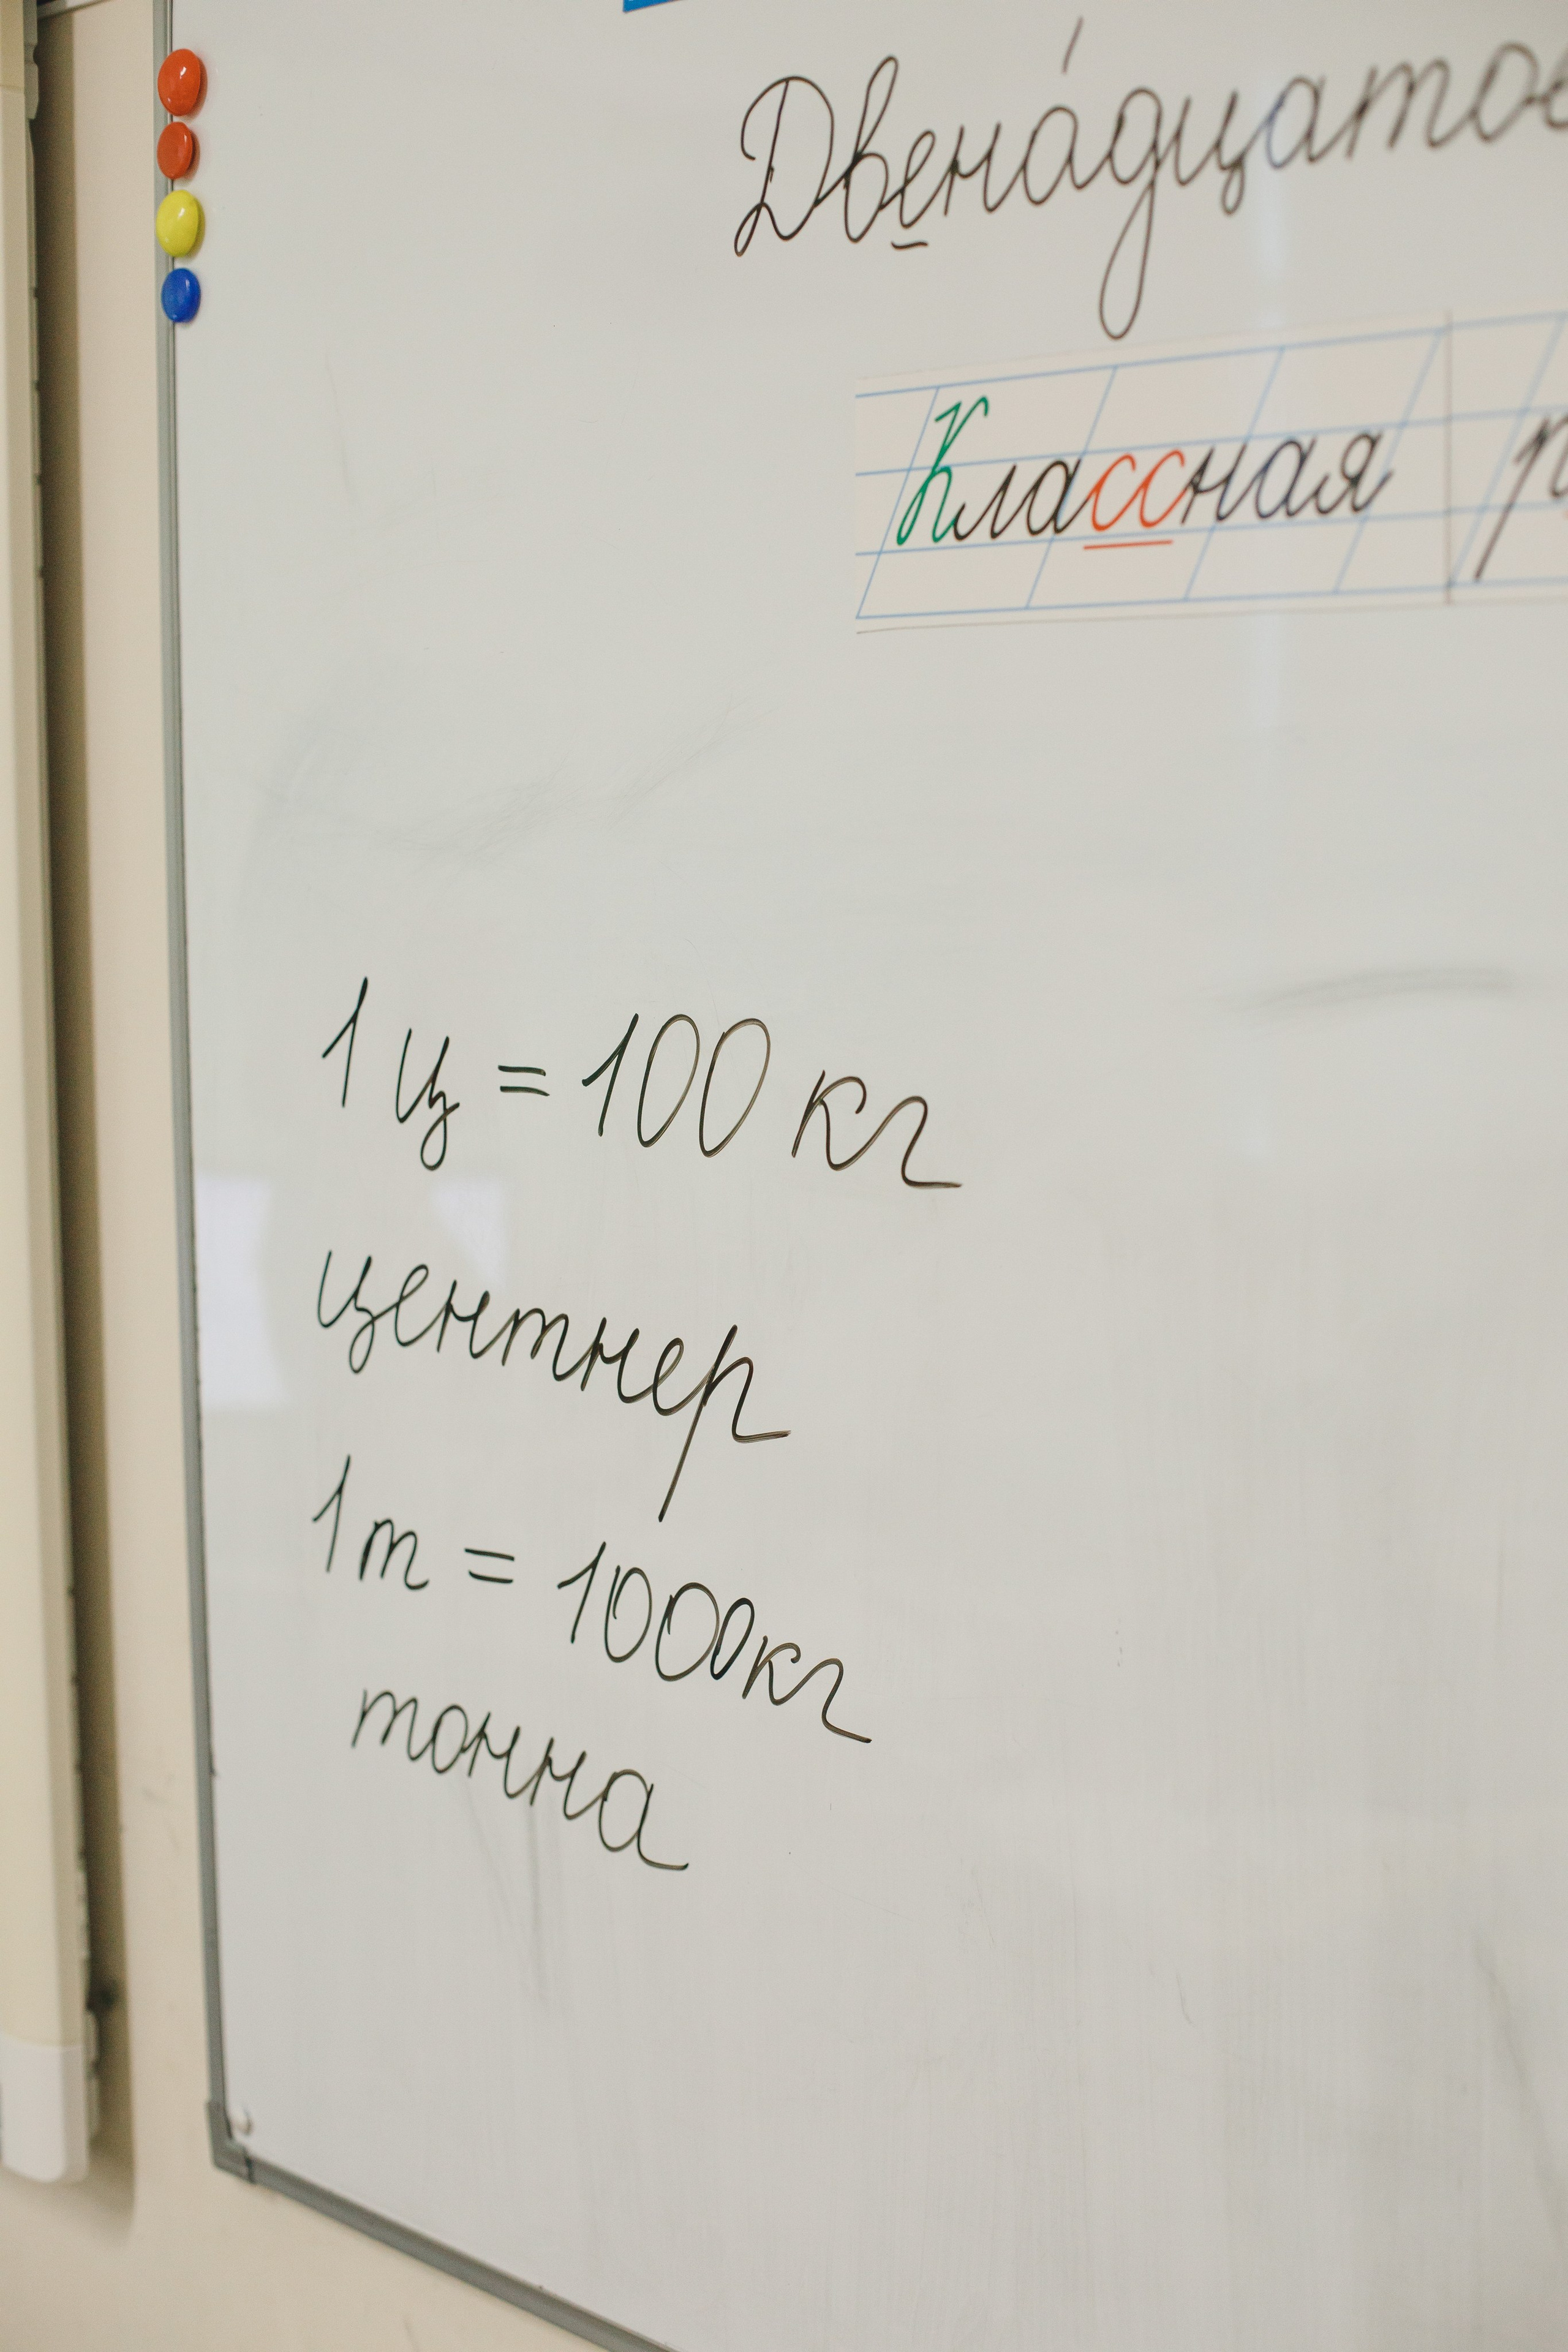 Двена́дцатое
Классная
1 ц = 100 кг
центнер
1 т = 1000 кг
тонна